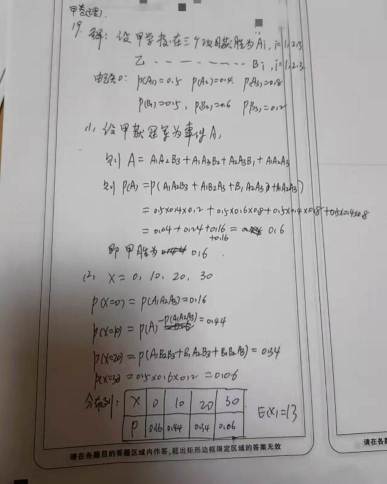 甲卷(理)
19. 解: 设甲学校在三个项目获胜为Ai, i=1.2.3
乙 ‥ ‥ ‥ ‥ ‥ Bi, i=1.2.3.
P(A1)=0.5 P(A2)=0.4 P(A3)=0.8
P(B1)=0.5, P(B2)=0.6 P(B3)=0.2
(1, 设甲获冠军为事件A,
则 A = A1A2B3 + A1A3B2 + A2A3B1 + A1A2A3
则 P(A) = P(A1A2B3 + A1B2A3 + B1A2A3 + A1A2A3)
= 0.5×0.4×0.2 + 0.5×0.6×0.8 + 0.5×0.4×0.8 + 0.5×0.4×0.8
= 0.04 + 0.24 + 0.16 +0.16 = 0.6
即甲胜为 0.6
(2, X = 0, 10, 20, 30
P(X=0) = P(A1A2A3) = 0.16
P(X=10) = P(A) - P(A1A2A3) = 0.44
P(X=20) = P(A1B2B3 + B1A2B3 + B1B2A3) = 0.34
P(X=30) = 0.5×0.6×0.2 = 0.06
分布列: X 0 10 20 30
P 0.16 0.44 0.34 0.06 E(X)=13
请在各题目的答题区域内作答,超出矩形边框限定区域的答案无效
请在各题